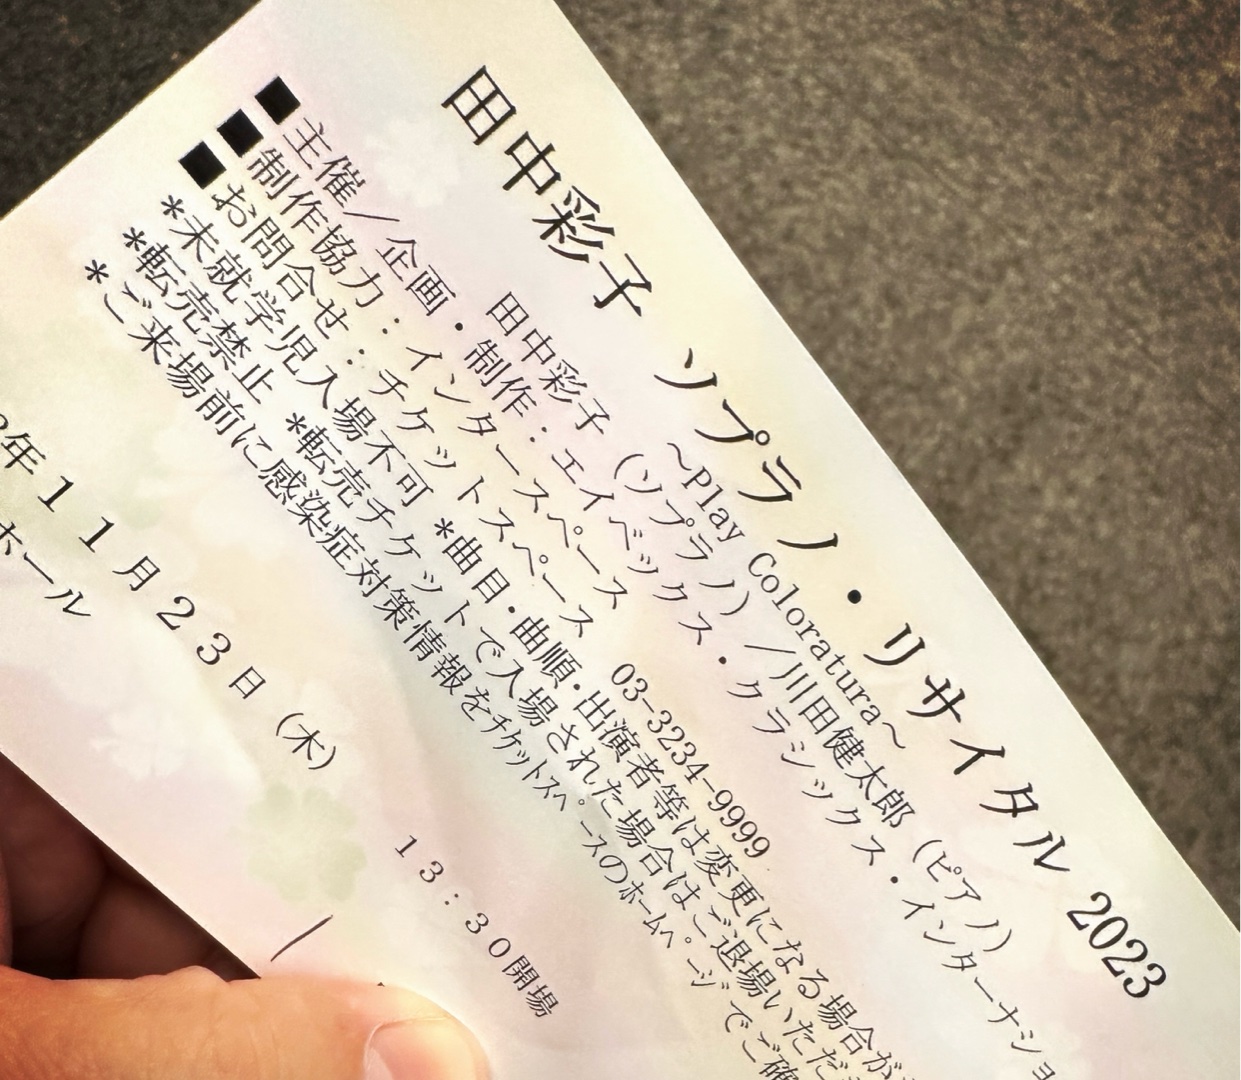 田中彩子 ソプラノ・リサイタル 2023
～Play Coloratura～
田中彩子 (ソプラノ)／川田健太郎 (ピアノ)
■主催／企画・制作：エイベックス・クラシックス・インターナショ
■制作協力：インタースペース
■お問合せ：チケットスペース 03-3234-9999
*未就学児入場不可 *曲目・曲順・出演者等は変更になる場合が
*転売禁止 *転売チケットで入場された場合はご退場いただ
*ご来場前に感染症対策情報をﾁｹｯﾄｽﾍﾟｰｽのﾎｰﾑﾍﾟｰｼﾞでご確
年11月23日 (木) 13:30開場
ホール